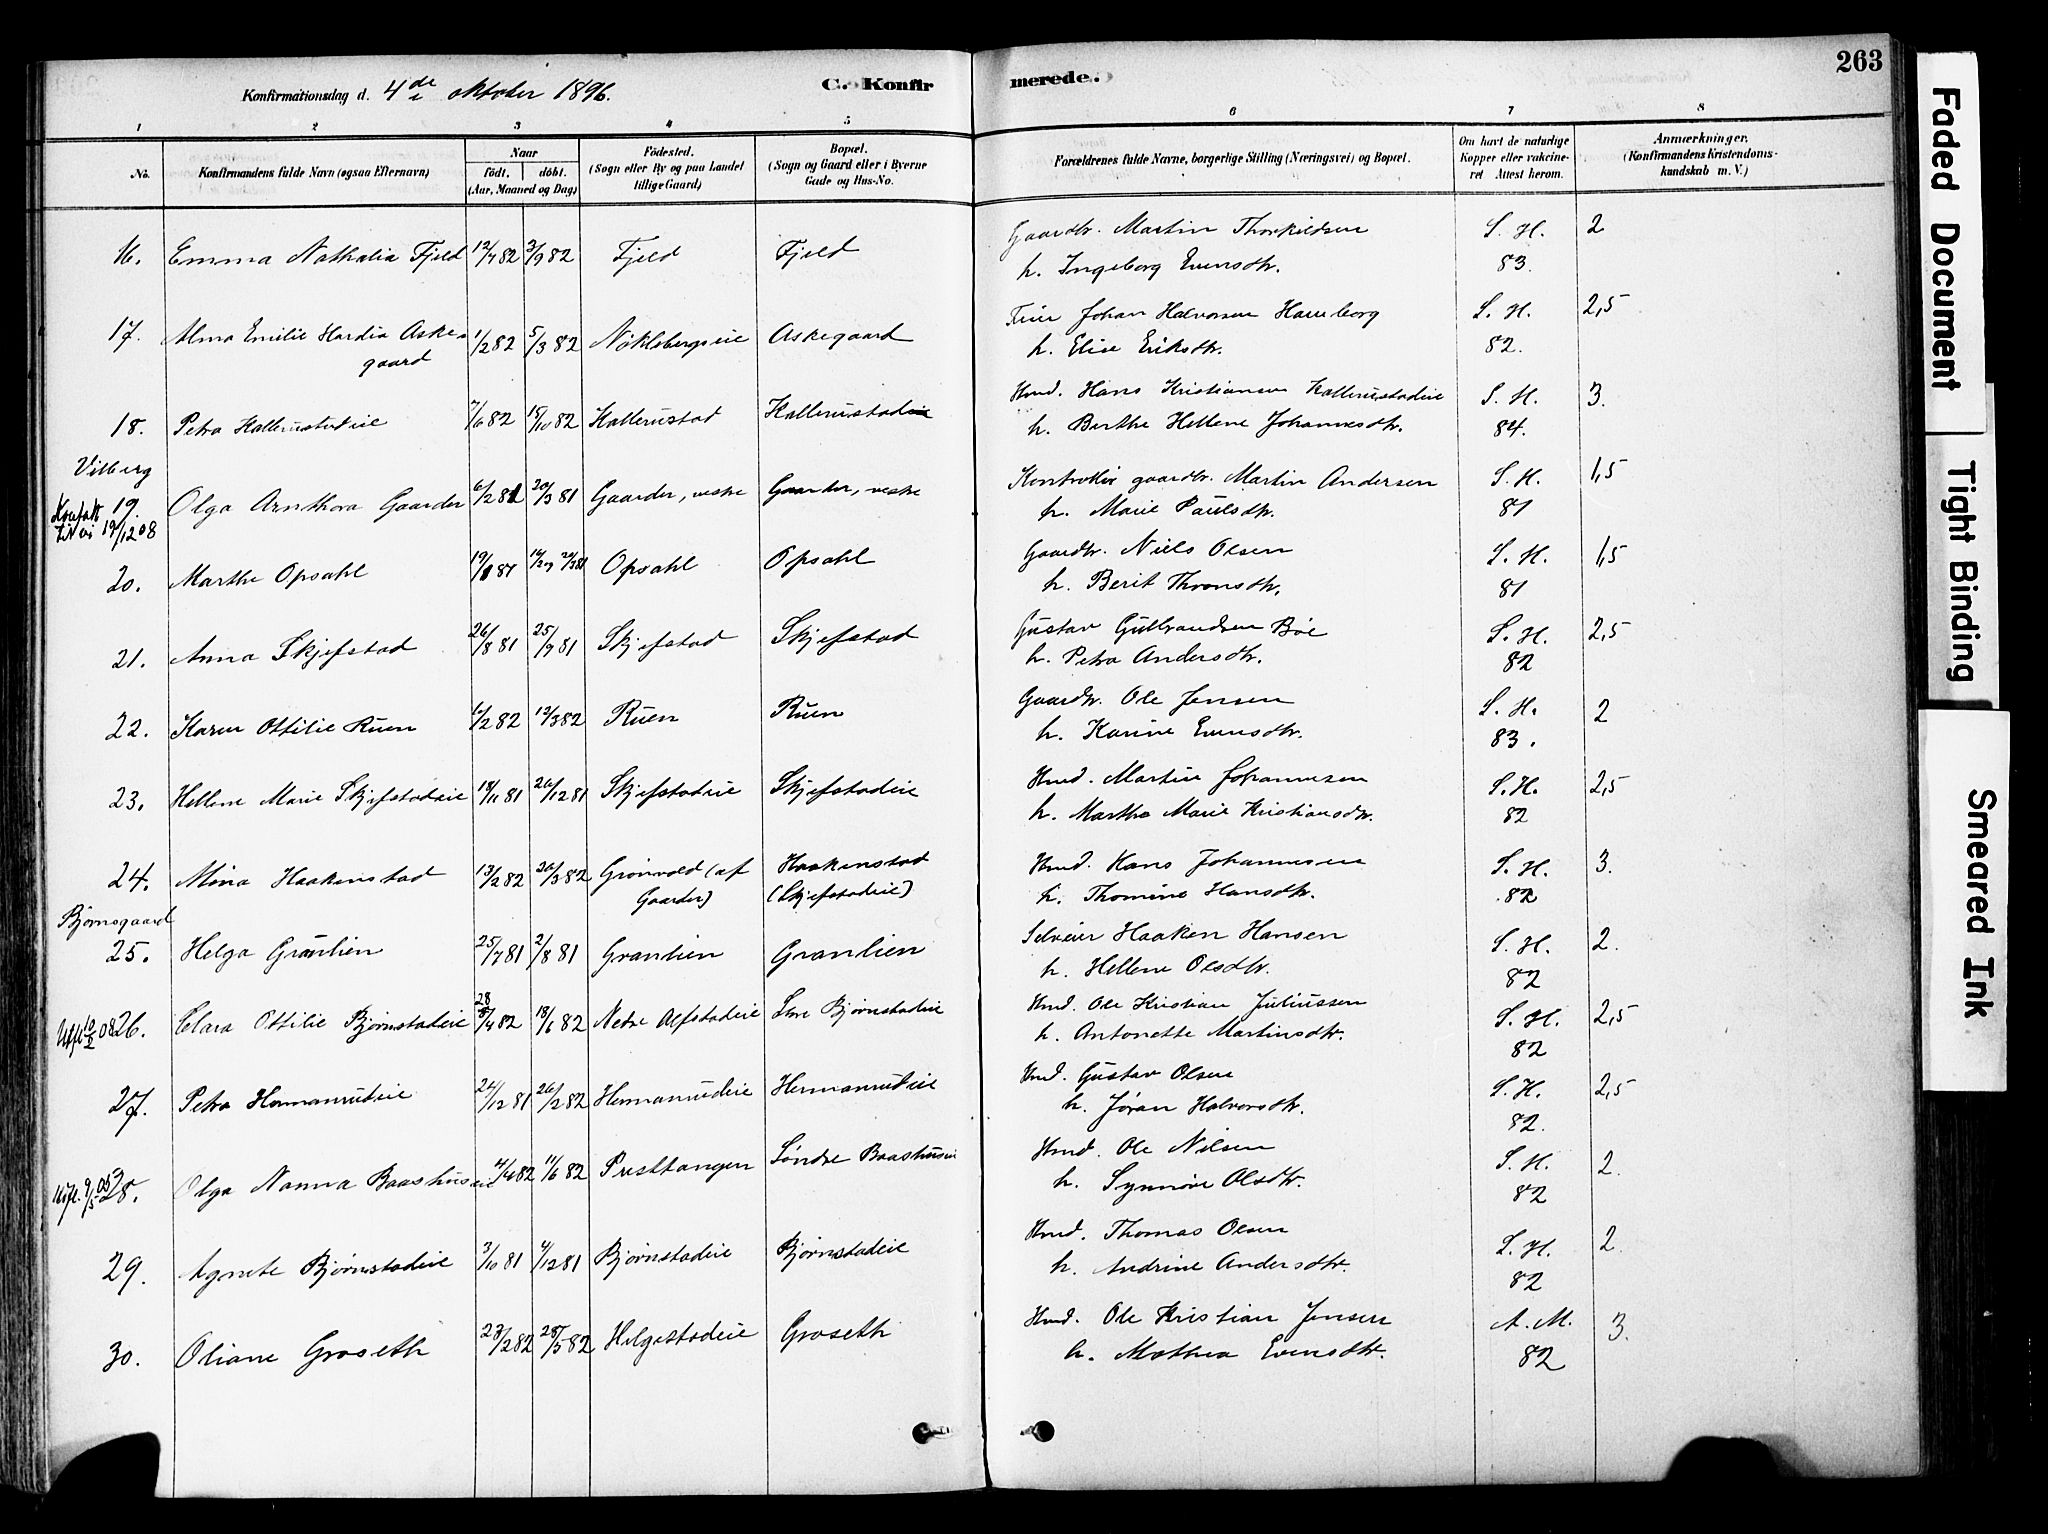 Konfirmationsdag d. 4de oktober 1896.
C. Konfirmerede.
263
1 2 3 4 5 6 7 8
No.
Konfirmandens fulde Navn (ogsaa Efternavn)
Naar
födt. döbt.
(Aar, Maaned og Dag)
Födested.
(Sogn eller By og paa Landet
tillige Gaard)
Bopæl.
(Sogn og Gaard eller i Byerne
Gade og Hus-No.
Forældrenes fulde Navne, borgerlige Stilling (Næringsvei) og Bopæl.
Om havt de naturlige
Kopper eller vakcine-
ret Attest herom.
Anmærkninger.
(Konfirmandens Kristendoms-
kundskab m. V.)
16. Emma Nathalia Fjeld 12/7 82 3/9 82 Fjeld Fjeld Gaardbr. Martin Thorkildsen S. H. 2
h. Ingeborg Evensdtr. 83.
17. Alma Emilie Hardia Aske- 1/2 82 5/3 82 Nöklebergseie Askegaard Johan Halvorsen Hamborg S. H. 2,5
gaard h. Elise Eriksdtr. 82.
18. Petra Kallerustadeie 7/6 82 15/10 82 Kallerustad Kallerustadeie Hmd. Hans Kristiansen Kallerustadeie S. H. 3.
h. Berthe Hellene Johannesdtr. 84.
Vilberg
19. Olga Arnthora Gaarder 6/2 81 20/3 81 Gaarder, vestre Gaarder, vestre gaardbr. Martin Andersen S. H. 1,5
19/12 08 h. Marie Paulsdtr. 81
20. Marthe Opsahl Opsahl Opsahl Gaardbr. Niels Olsen S. H. 1,5
h. Berit Thronsdtr. 81
21. Anna Skjefstad 26/8 81 25/9 81 Skjefstad Skjefstad Gustav Gulbrandsen Böe S. H. 2,5
h. Petra Andersdtr. 82
22. Karen Ottilie Ruen 82 12/3 82 Ruen Ruen Gaardbr. Ole Jensen S. H. 2
h. Karine Evensdtr. 83.
23. Hellene Marie Skjefstadeie 18/11 81 26/12 81 Skjefstadeie Skjefstadeie Hmd. Martin Johannesen S. H. 2,5
h. Marthe Marie Kristiansdtr. 82
24. Mina Haakenstad 13/2 82 26/3 82 Grönvold (af Haakenstad Hmd. Hans Johannesen S. H. 3.
Gaarder) (Skjefstadeie) h. Thomine Hansdtr. 82
Bjørnsgaard
25. Helga Granlien 25/7 81 2/8 81 Granlien Granlien Selveier Haaken Hansen S. H. 2.
h. Hellene Olsdtr. 82
Utfl. 10/2 08 26. Clara Ottilie Bjørnstadeie 28/4 82 18/6 82 Nedre Alfstadeie Store Bjørnstadeie Hmd. Ole Kristian Juliussen S. H. 2,5
h. Antonette Martinsdtr. 82
27. Petra Hermanrudeie 24/12 81 26/2 82 Hermanrudeie Hermanrudeie Hmd. Gustav Olsen S. H. 2,5
h. Jöran Halvorsdtr. 82.
Utfl. 9/5 05 28. Olga Nanna Baashuseie 4/4 82 11/6 82 Presttangen Søndre Baashuseie Hmd. Ole Nilsen S. H. 2.
h. Synnöve Olsdtr. 82
29. Agnete Bjørnstadeie 3/10 81 4/12 81 Bjørnstadeie Bjørnstadeie Hmd. Thomas Olsen S. H. 2.
h. Andrine Andersdtr. 82
30. Oliane Groseth 23/2 82 28/5 82 Helgestadeie Groseth Hmd. Ole Kristian Jensen A. M. 3.
h. Mathea Evensdtr. 82
Faded Document
Tight Binding
Smeared Ink